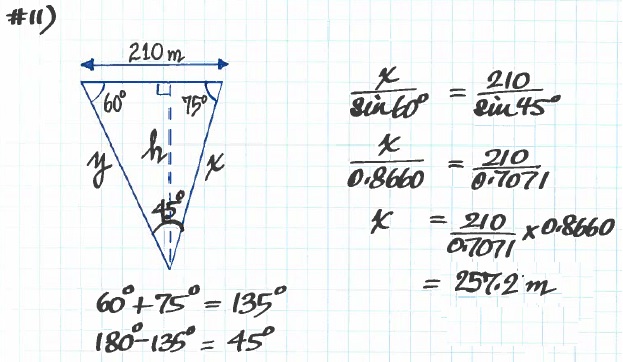 #11)
210 m
60° 75°
y h x
45°
60° + 75° = 135°
180° - 135° = 45°
x/sin 60° = 210/sin 45°
x/0.8660 = 210/0.7071
x = 210/0.7071 × 0.8660
= 257.2 m